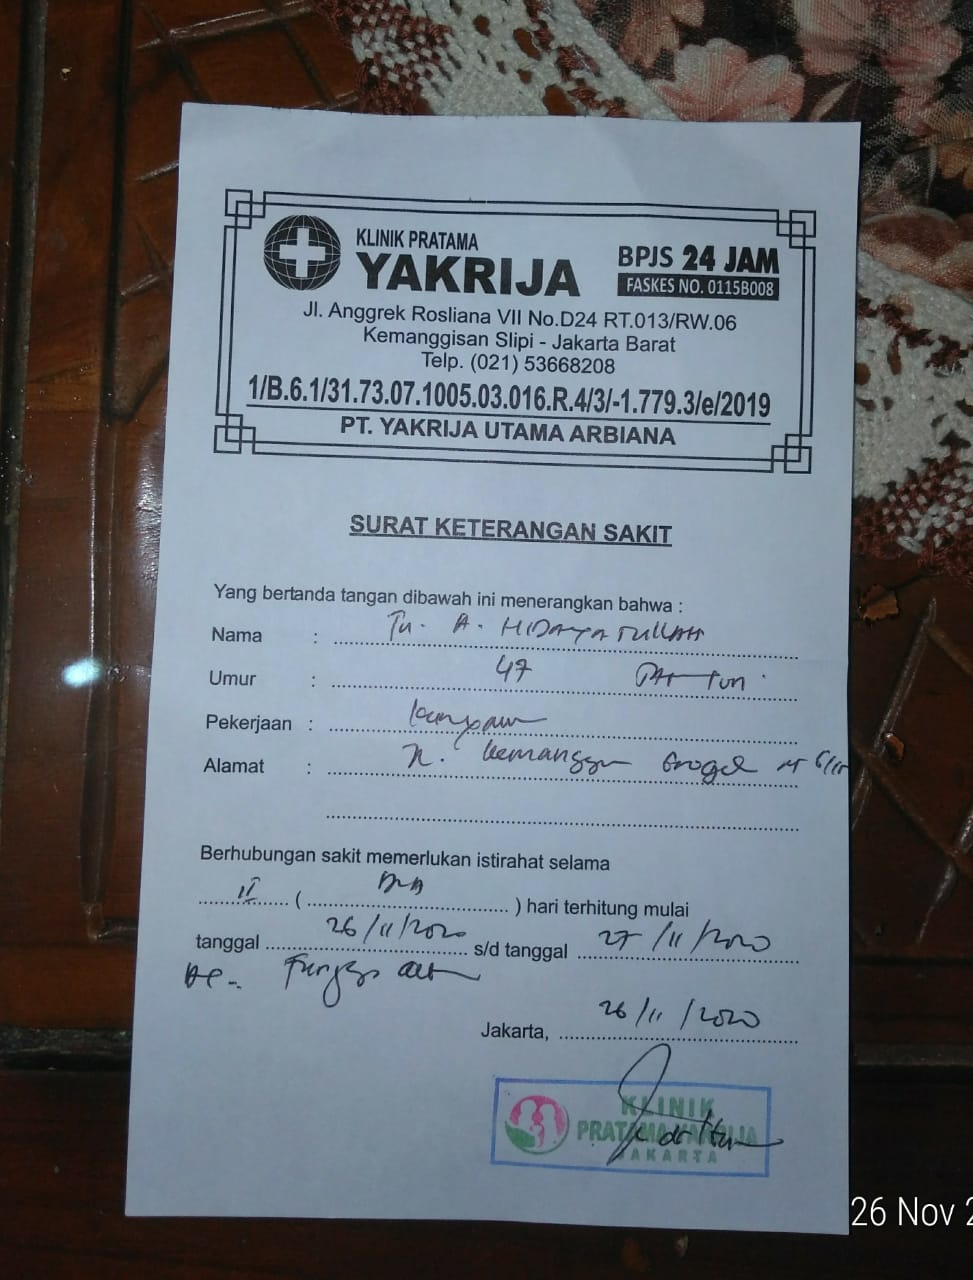 KLINIK PRATAMA
YAKRIJA
BPJS 24 JAM
FASKES NO. 0115B008
Jl. Anggrek Rosliana VII No.D24 RT.013/RW.06
Kemanggisan Slipi - Jakarta Barat
Telp. (021) 53668208
1/B.6.1/31.73.07.1005.03.016.R.4/3/-1.779.3/e/2019
PT. YAKRIJA UTAMA ARBIANA
SURAT KETERANGAN SAKIT
Yang bertanda tangan dibawah ini menerangkan bahwa :
Nama : Tn. A. HIDAYATULLAH
Umur : 47
Pekerjaan :
Alamat :
Berhubungan sakit memerlukan istirahat selama
II ( ) hari terhitung mulai
tanggal 26/11/2020 s/d tanggal 27/11/2020
Jakarta, 26/11/2020
KLINIK
PRATAMA YAKRIJA
JAKARTA
26 Nov 2